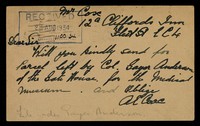 Mr Cox
12a Cliffords Inn
Fleet St E.C.4
REC
Dear Sir
Will you kindly send for
parcel left by Col. Gayer Anderson
of the Gate House for the Medical
Museum. and
Oblige
A Cox
Gayer Anderson